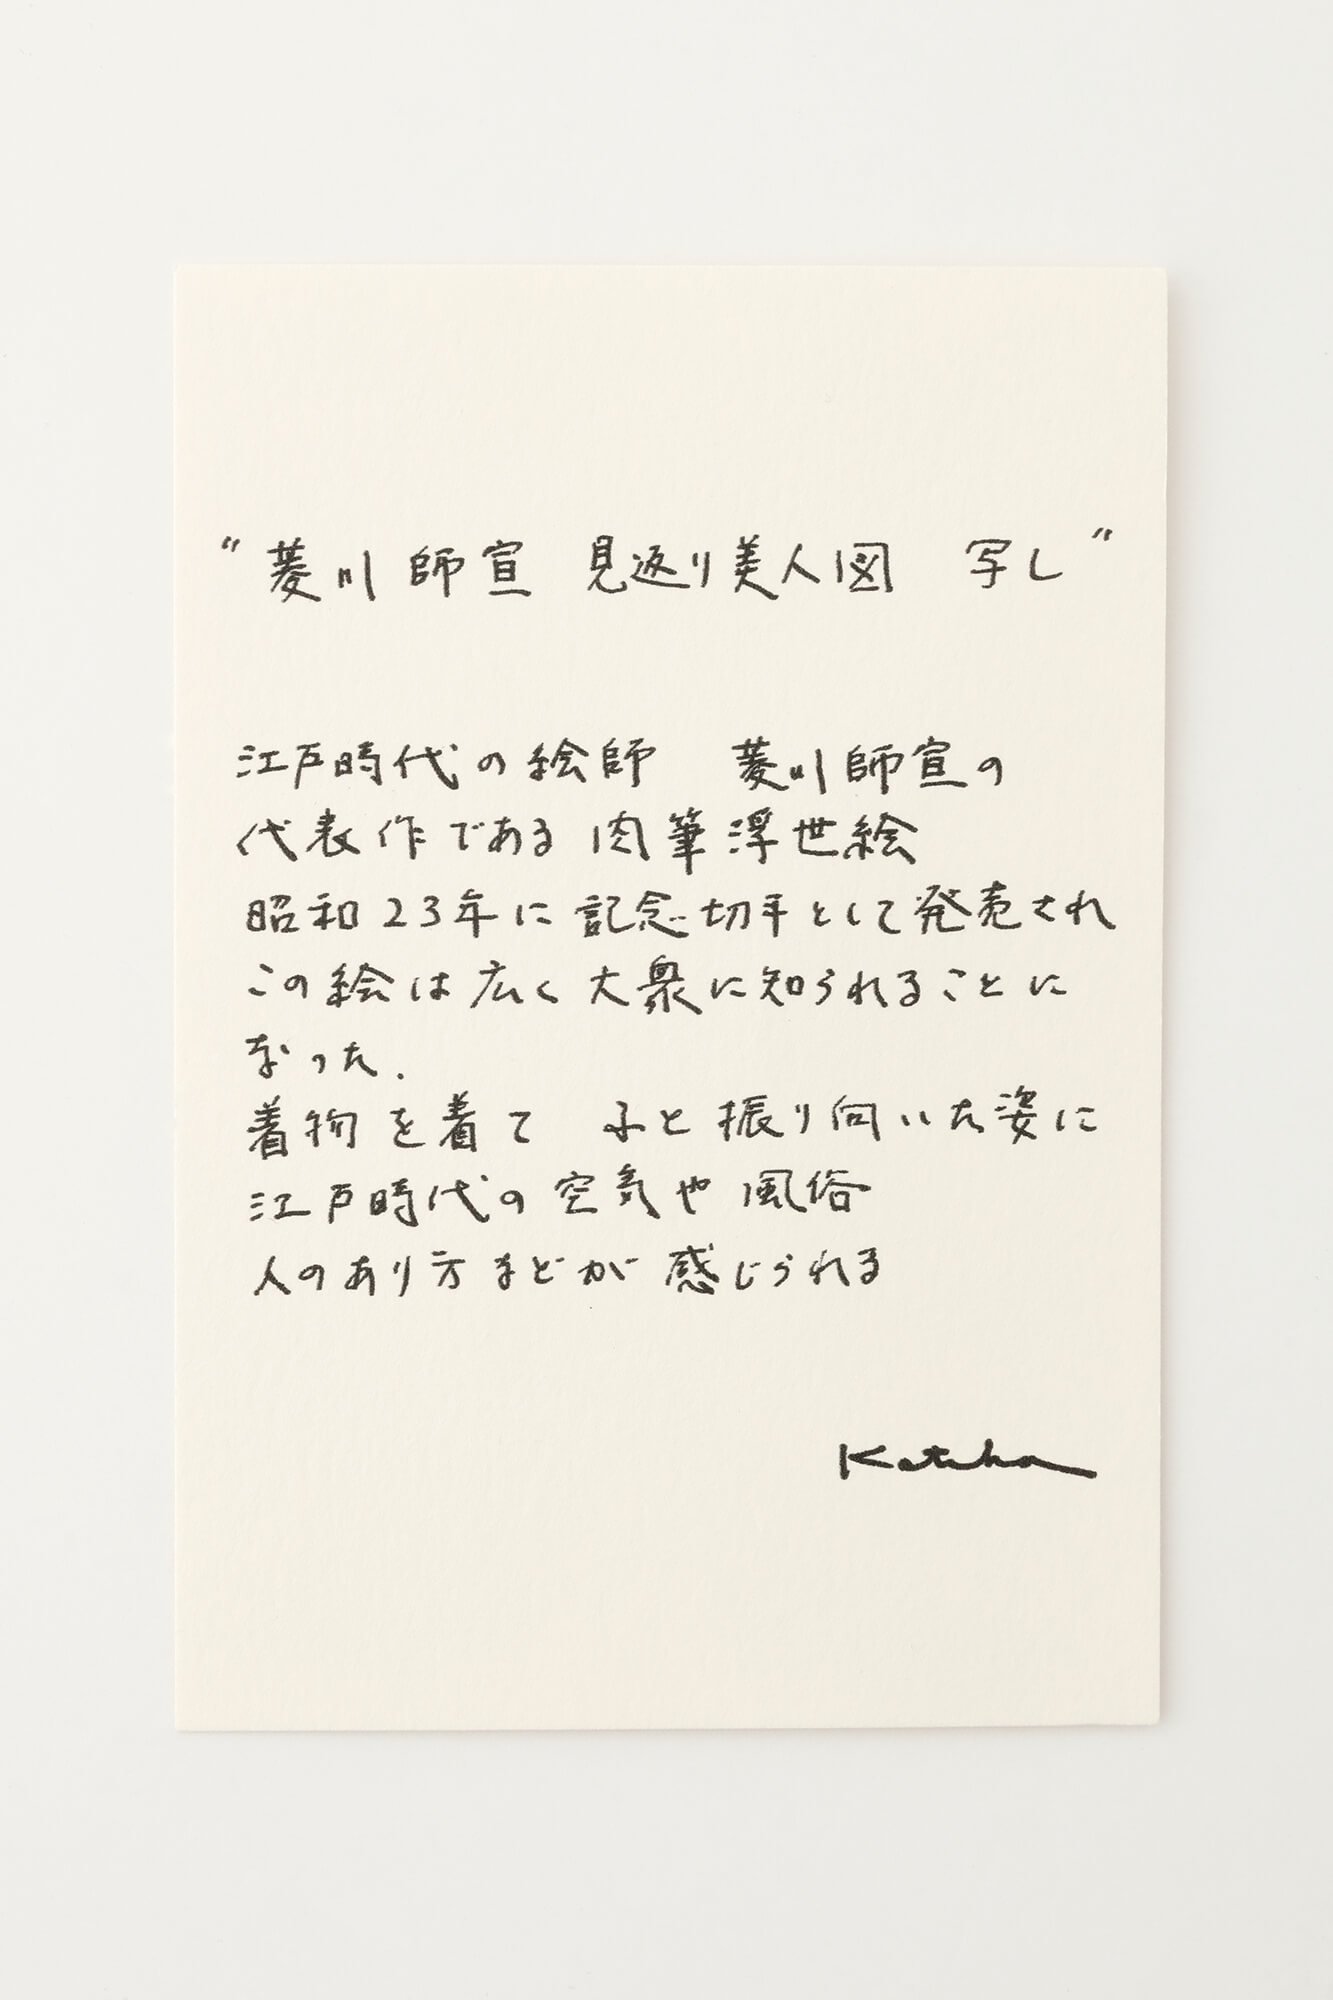 "菱川師宣 見返り美人図 写し"
江戸時代の絵師 菱川師宣の
代表作である 肉筆浮世絵
昭和23年に記念切手として発売され
この絵は広く大衆に知られることに
なった.
着物を着て ふと振り向いた姿に
江戸時代の空気や風俗
人のあり方までが感じられる